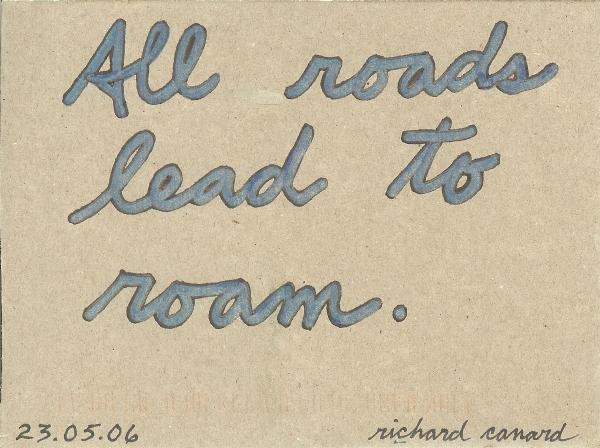 All roads
lead to
roam.
23.05.06 richard canard